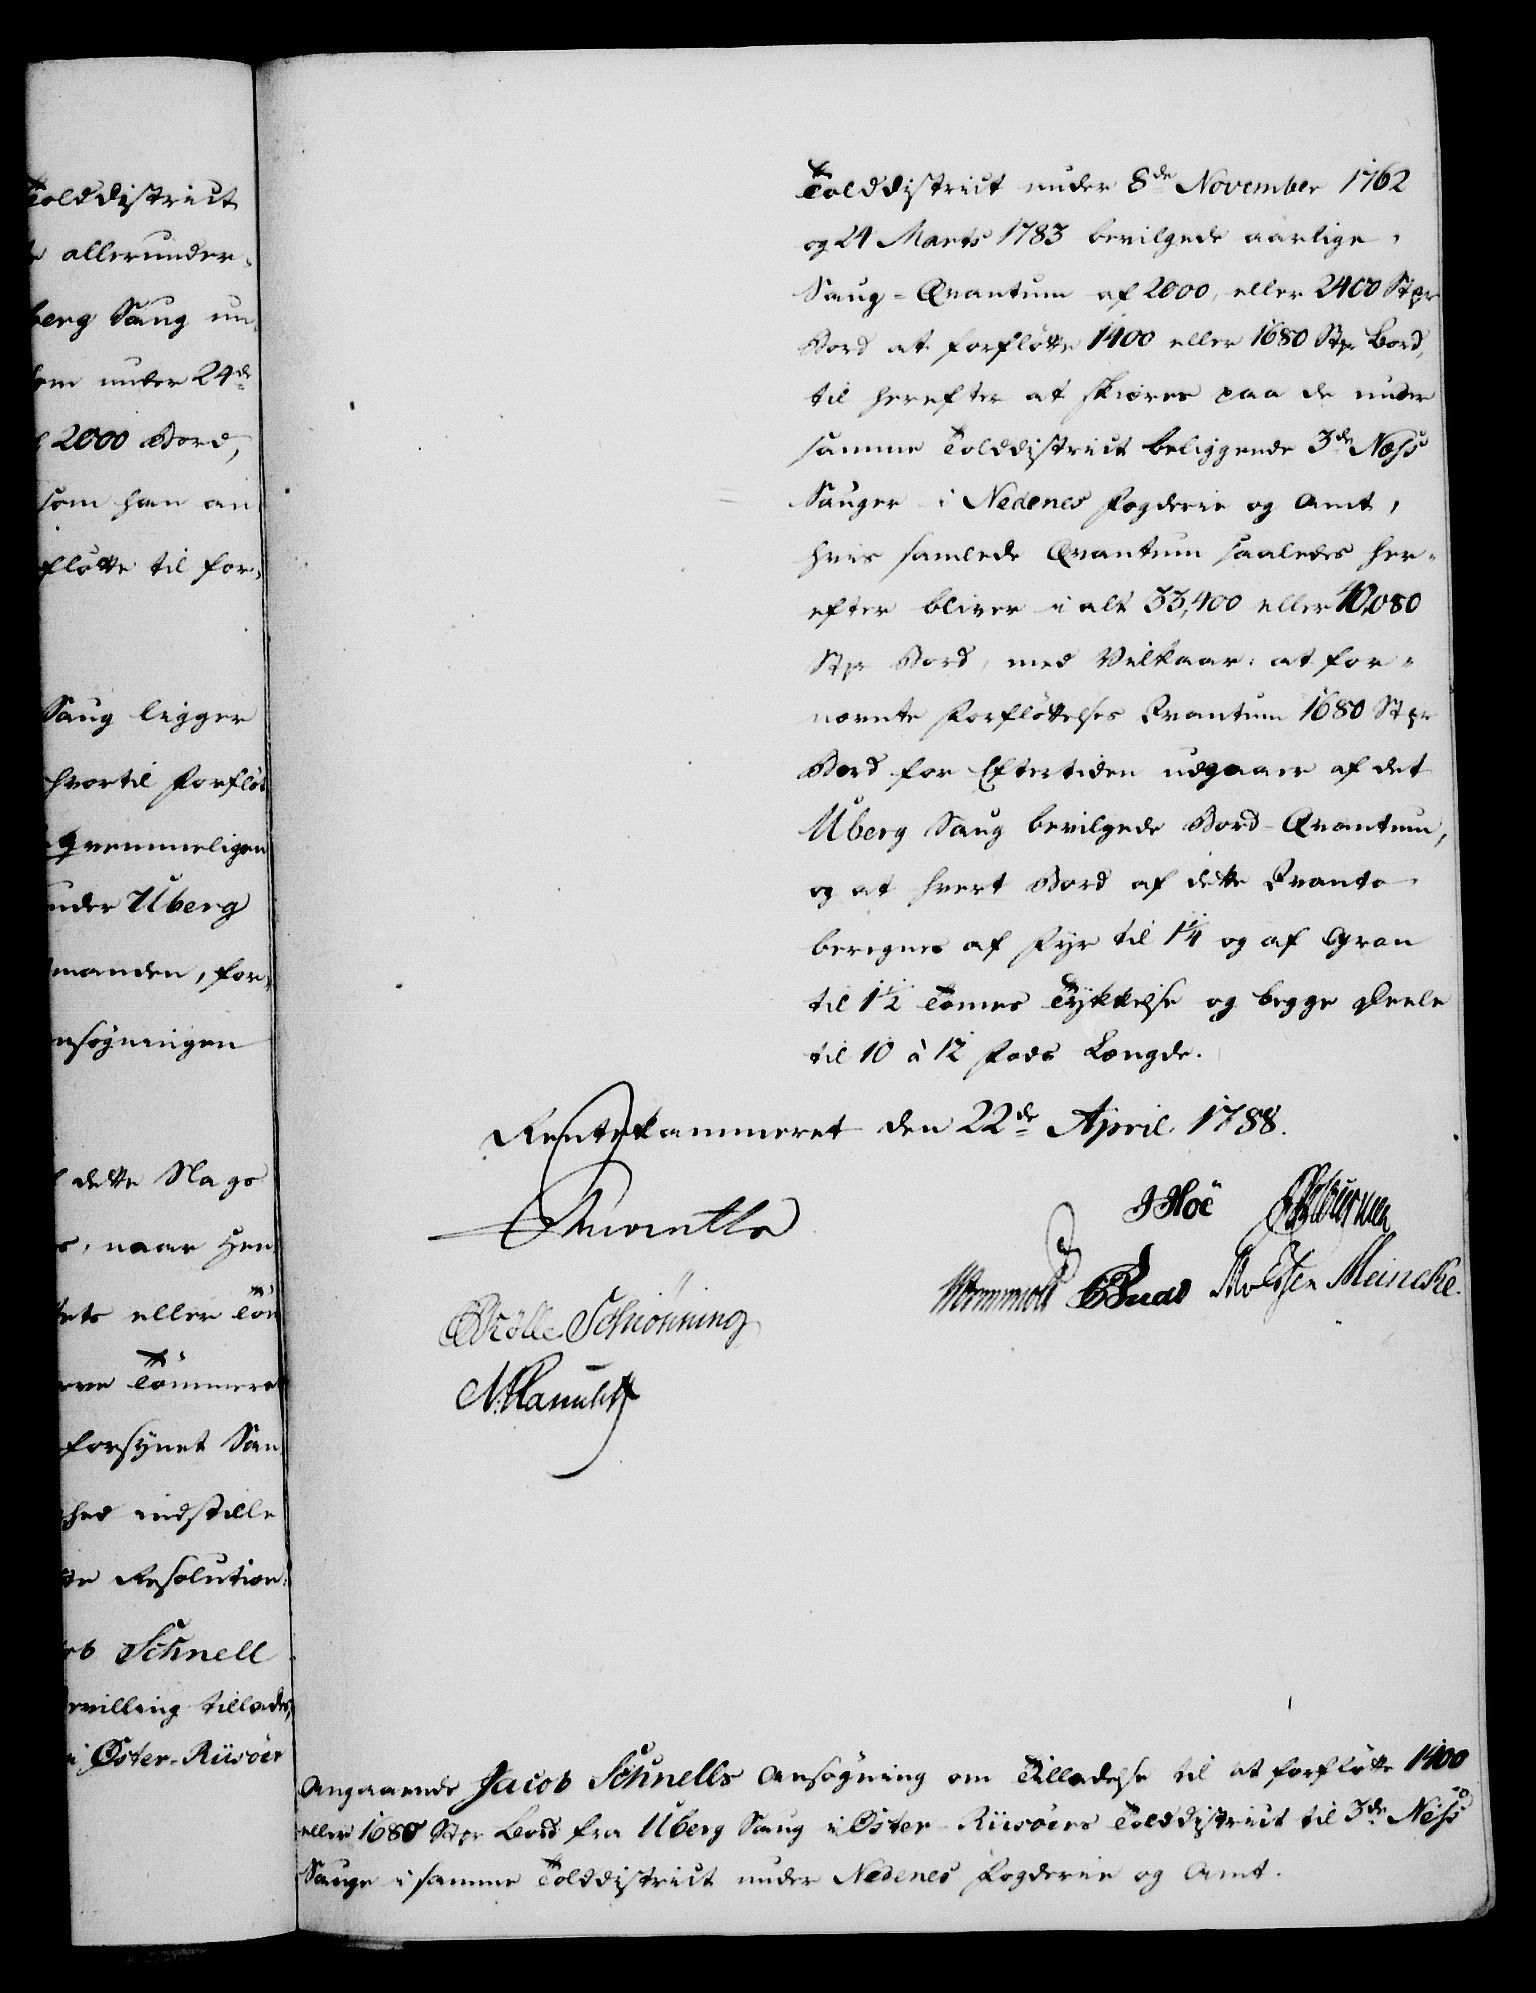 Tolddistrict
allerunder-
berg Saug un-
som under 24de
2000 Bord,
som han an
flötte til for-
Saug ligger
hvortil Forflöt
qvemmeligen
under Uberg
manden, for-
nsøgningen
dette Slags
naar Hen
ets eller Töm
Tömmeret
forsynet Sau
hed indstille
Resolution:
ob Schnell
evilling tillades,
i Öster-Riisöer
Tolddistrict under 8de November 1762
og 24 Marts 1783 bevilgede aarlige
Saug-Qvantum af 2000, eller 2400 Stpr
Bord at forflötte 1400 eller 1680 Stpr Bord,
til herefter at skiæres paa de under
samme Tolddistrict beliggende 3de Næss
Sauger i Nedenes Fogderie og Amt,
hvis samlede Qvantum saaledes her-
efter bliver i alt 33,400 eller 40,080
Stpr Bord, med Vilkaar: at for-
nævnte Forflöttelses Qvantum 1680 Stpr
Bord for Eftertiden udgaaer af det
Uberg Saug bevilgede Bord-Qvantum,
og at hvert Bord af dette Qvanto
beregnes af Fyr til 1¼ og af Gran
til 1½ Tomes Tykkelse og begge Deele
til 10 à 12 Fods Længde.
Rentekammeret den 22de April 1788.
J Höe
Wormwold Moesser Meincke.
Schiönning
Angaaende Jacob Schnells Ansøgning om Tilladelse til at forflötte 1400
eller 1680 Stpr Bord fra Uberg Saug i Öster-Riisöers Tolddistrict til 3de Næss
Sauge i samme Tolddistrict under Nedenes Fogderie og Amt.